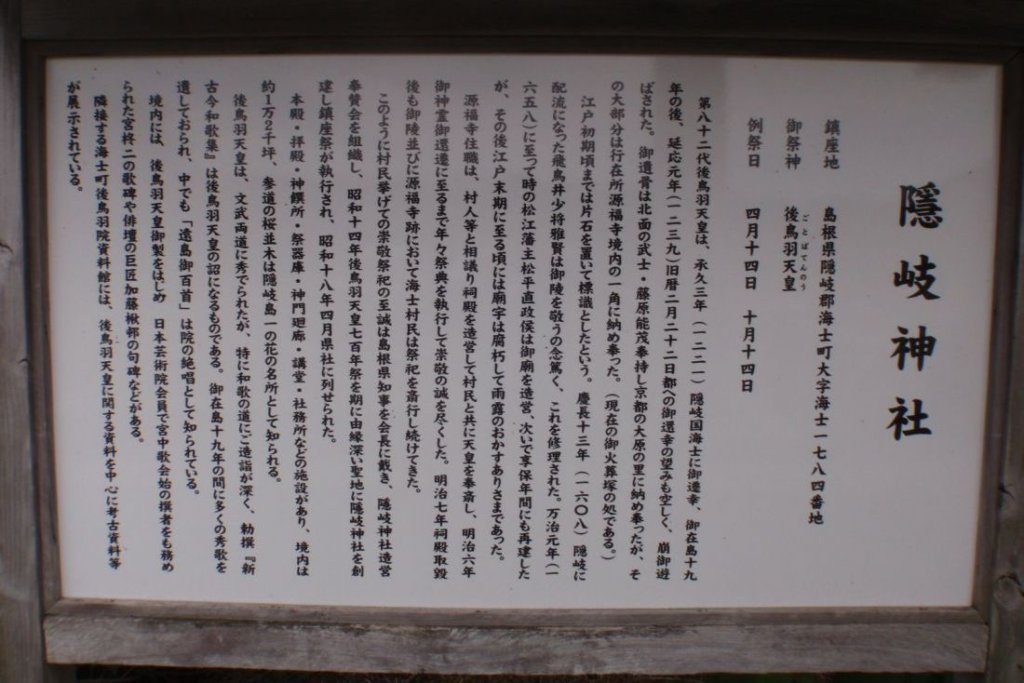 隠岐神社
鎮座地　島根県隠岐郡海士町大字海士一七八四番地
御祭神　後鳥羽天皇
ごとばてんのう
例祭日　四月十四日　十月十四日
第八十二代後鳥羽天皇は、承久三年（一二二一）隠岐国海士に御遷幸、御在島十九
年の後、延応元年（一二三九）旧暦二月二十二日都への御還幸の望みも空しく、崩御遊
ばされた。御遺骨は北面の武士・藤原能茂奉持し京都の大原の里に納め奉ったが、そ
の大部分は行在所源福寺境内の一角に納め奉った。（現在の御火葬塚の処である。）
江戸初期頃までは片石を置いて標識としたという。慶長十三年（一六〇八）隠岐に
配流になった飛鳥井少将雅賢は御陵を敬うの念篤く、これを修理された。万治元年（一
六五八）に至って時の松江藩主松平直政侯は御廟を造営、次いで享保年間にも再建した
が、その後江戸末期に至る頃には廟宇は腐朽して雨露のおかすありさまであった。
源福寺住職は、村人等と相議り祠殿を造営して村民と共に天皇を奉斎し、明治六年
御神霊御還遷に至るまで年々祭典を執行して崇敬の誠を尽くした。明治七年祠殿取毀
後も御陵並びに源福寺跡において海士村民は祭祀を斎行し続けてきた。
このように村民挙げての崇敬祭祀の至誠は島根県知事を会長に戴き、隠岐神社造営
奉賛会を組織し、昭和十四年後鳥羽天皇七百年祭を期に由縁深い聖地に隠岐神社を創
建し鎮座祭が執行され、昭和十八年四月県社に列せられた。
本殿・拝殿・神饌所・祭器庫・神門廻廊・講堂・社務所などの施設があり、境内は
約１万２千坪、参道の桜並木は隠岐島一の花の名所として知られる。
後鳥羽天皇は、文武両道に秀でられたが、特に和歌の道にご造詣が深く、勅撰『新
古今和歌集』は後鳥羽天皇の詔になるものである。御在島十九年の間に多くの秀歌を
遺しておられ、中でも「遠島御百首」は院の絶唱として知られている。
境内には、後鳥羽天皇御製をはじめ　日本芸術院会員で宮中歌会始の撰者をも務め
られた宮柊二の歌碑や俳壇の巨匠加藤楸邨の句碑などがある。
隣接する海士町後鳥羽院資料館には、後鳥羽天皇に関する資料を中心に考古資料等
が展示されている。